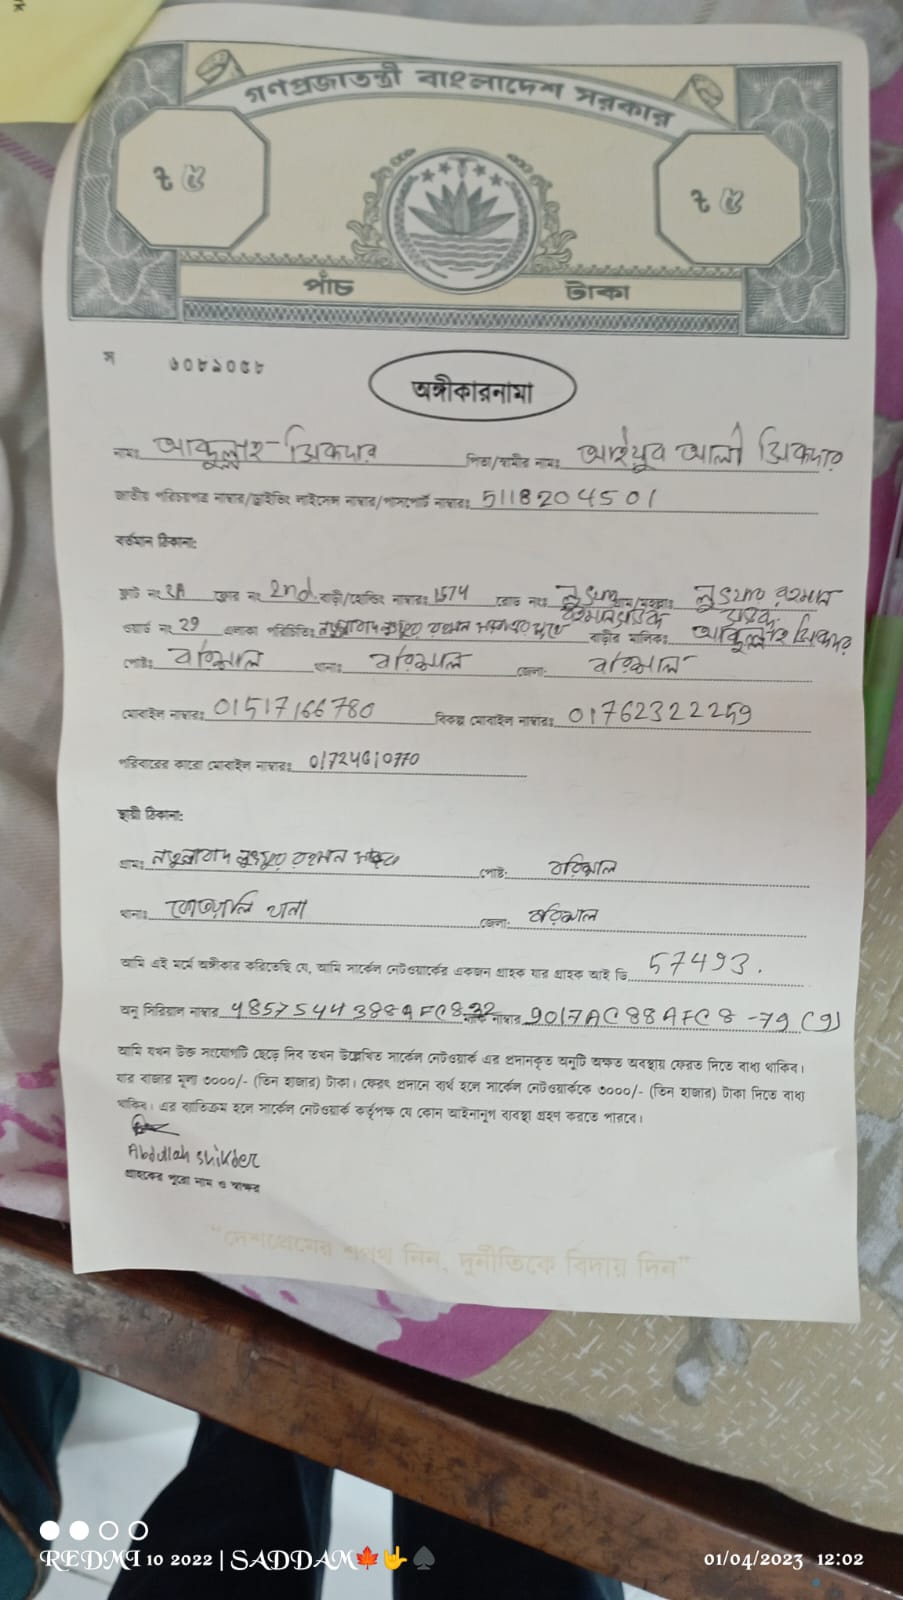 গণপ্রজাতন্ত্রী বাংলাদেশ সরকার
৳ ৫ ৳ ৫
পাঁচ টাকা
স ৬০৮৯০৫৮
অঙ্গীকারনামা
নামঃ আব্দুল্লাহ শিকদার পিতা/স্বামীর নামঃ আইয়ুব আলী শিকদার
জাতীয় পরিচয়পত্র নাম্বার/ড্রাইভিং লাইসেন্স নাম্বার/পাসপোর্ট নাম্বারঃ 5118204501
বর্তমান ঠিকানা:
ফ্লাট নং 2A ফ্লোর নং 2nd. বাড়ী/হোল্ডিং নাম্বারঃ 1574 রোড নংঃ লুৎফর রহমান সড়ক
ওয়ার্ড নং 29 এলাকা পরিচিতিঃ বাড়ীর মালিকঃ আব্দুল্লাহ শিকদার
পোষ্টঃ বরিশাল থানাঃ বরিশাল জেলা: বরিশাল
মোবাইল নাম্বারঃ 01517166780 বিকল্প মোবাইল নাম্বারঃ 01762322259
পরিবারের কারো মোবাইল নাম্বারঃ
স্থায়ী ঠিকানা:
গ্রামঃ লুৎফর রহমান সড়ক পোষ্ট: বরিশাল
থানাঃ কোতয়ালি থানা জেলা: বরিশাল
আমি এই মর্মে অঙ্গীকার করিতেছি যে, আমি সার্কেল নেটওয়ার্কের একজন গ্রাহক যার গ্রাহক আই ডি 57493.
অনু সিরিয়াল নাম্বার ম্যাক নাম্বার 9017AC88AFC8-79 (9)
আমি যখন উক্ত সংযোগটি ছেড়ে দিব তখন উল্লেখিত সার্কেল নেটওয়ার্ক এর প্রদানকৃত অনুটি অক্ষত অবস্থায় ফেরত দিতে বাধ্য থাকিব।
যার বাজার মূল্য ৩০০০/- (তিন হাজার) টাকা। ফেরৎ প্রদানে ব্যর্থ হলে সার্কেল নেটওয়ার্ককে ৩০০০/- (তিন হাজার) টাকা দিতে বাধ্য
থাকিব। এর ব্যতিক্রম হলে সার্কেল নেটওয়ার্ক কর্তৃপক্ষ যে কোন আইনানুগ ব্যবস্থা গ্রহণ করতে পারবে।
Abdullah Shikder
গ্রাহকের পুরো নাম ও স্বাক্ষর
"দেশপ্রেমের শপথ নিন, দুর্নীতিকে বিদায় দিন"
REDMI 10 2022 | SADDAM 01/04/2023 12:02